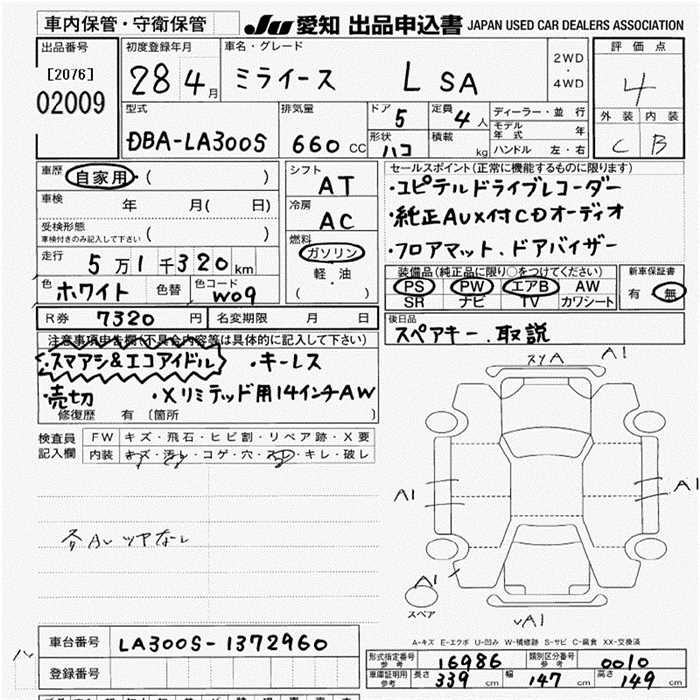 車内保管・守衛保管
JU 愛知 出品申込書 JAPAN USED CAR DEALERS ASSOCIATION
出品番号 初度登録年月 車名・グレード 2WD・4WD 評価点
[2076] 28 4月 ミライース L SA 4
02009
型式 排気量 ドア 5 定員 4人 ディーラー・並行 外装 内装
モデル年式 年
DBA-LA300S 660 CC 形状 ハコ 積載 kg ハンドル 左・右 C B
車歴 自家用・( ) シフト AT セールスポイント(正常に機能するものに限ります)
・ユピテルドライブレコーダー
車検 年 月( 日) 冷房 AC ・純正AUX付CDオーディオ
受検形態 車検付きのみ記入して下さい ( ) 燃料 ガソリン ・フロアマット、ドアバイザー
走行 5万1千320km 軽・油 装備品(純正品に限り○をつけてください) 新車保証書
( ) PS PW エアB AW 有 無
色 ホワイト 色替 色コード W09 SR ナビ TV カワシート
R券 7320円 名変期限 月 日 後日品
スペアキー、取説
注意事項申告欄(不具合内容等は具体的に記入して下さい)
・スマアシ&エコアイドル ・キーレス
・売切 ・Xリミテッド用14インチAW
修復歴 有 〔箇所 〕
検査員記入欄 FW キズ・飛石・ヒビ割・リペア跡・X要
内装 キズ・汚レ・コゲ・穴・スレ・キレ・破レ
スリA A1
A1 A1
A1
スペア
A1
A-キズ E-エクボ U-凹み W-補修跡 S-サビ C-腐食 XX-交換済
車台番号 LA300S-1372960
登録番号
形式指定番号 参考 16986 類別区分番号 参考 0010
車庫証明用 参考 長さ 339cm 幅 147cm 高さ 149cm